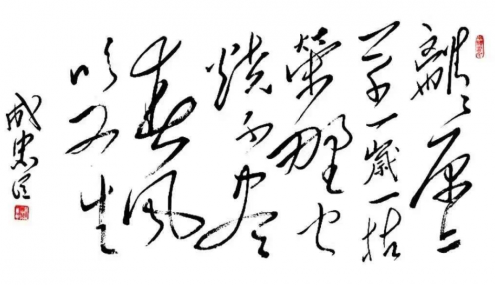 離離原上
草一歲一枯
榮野火
燒不尽
春風
吹又生
成忠臣